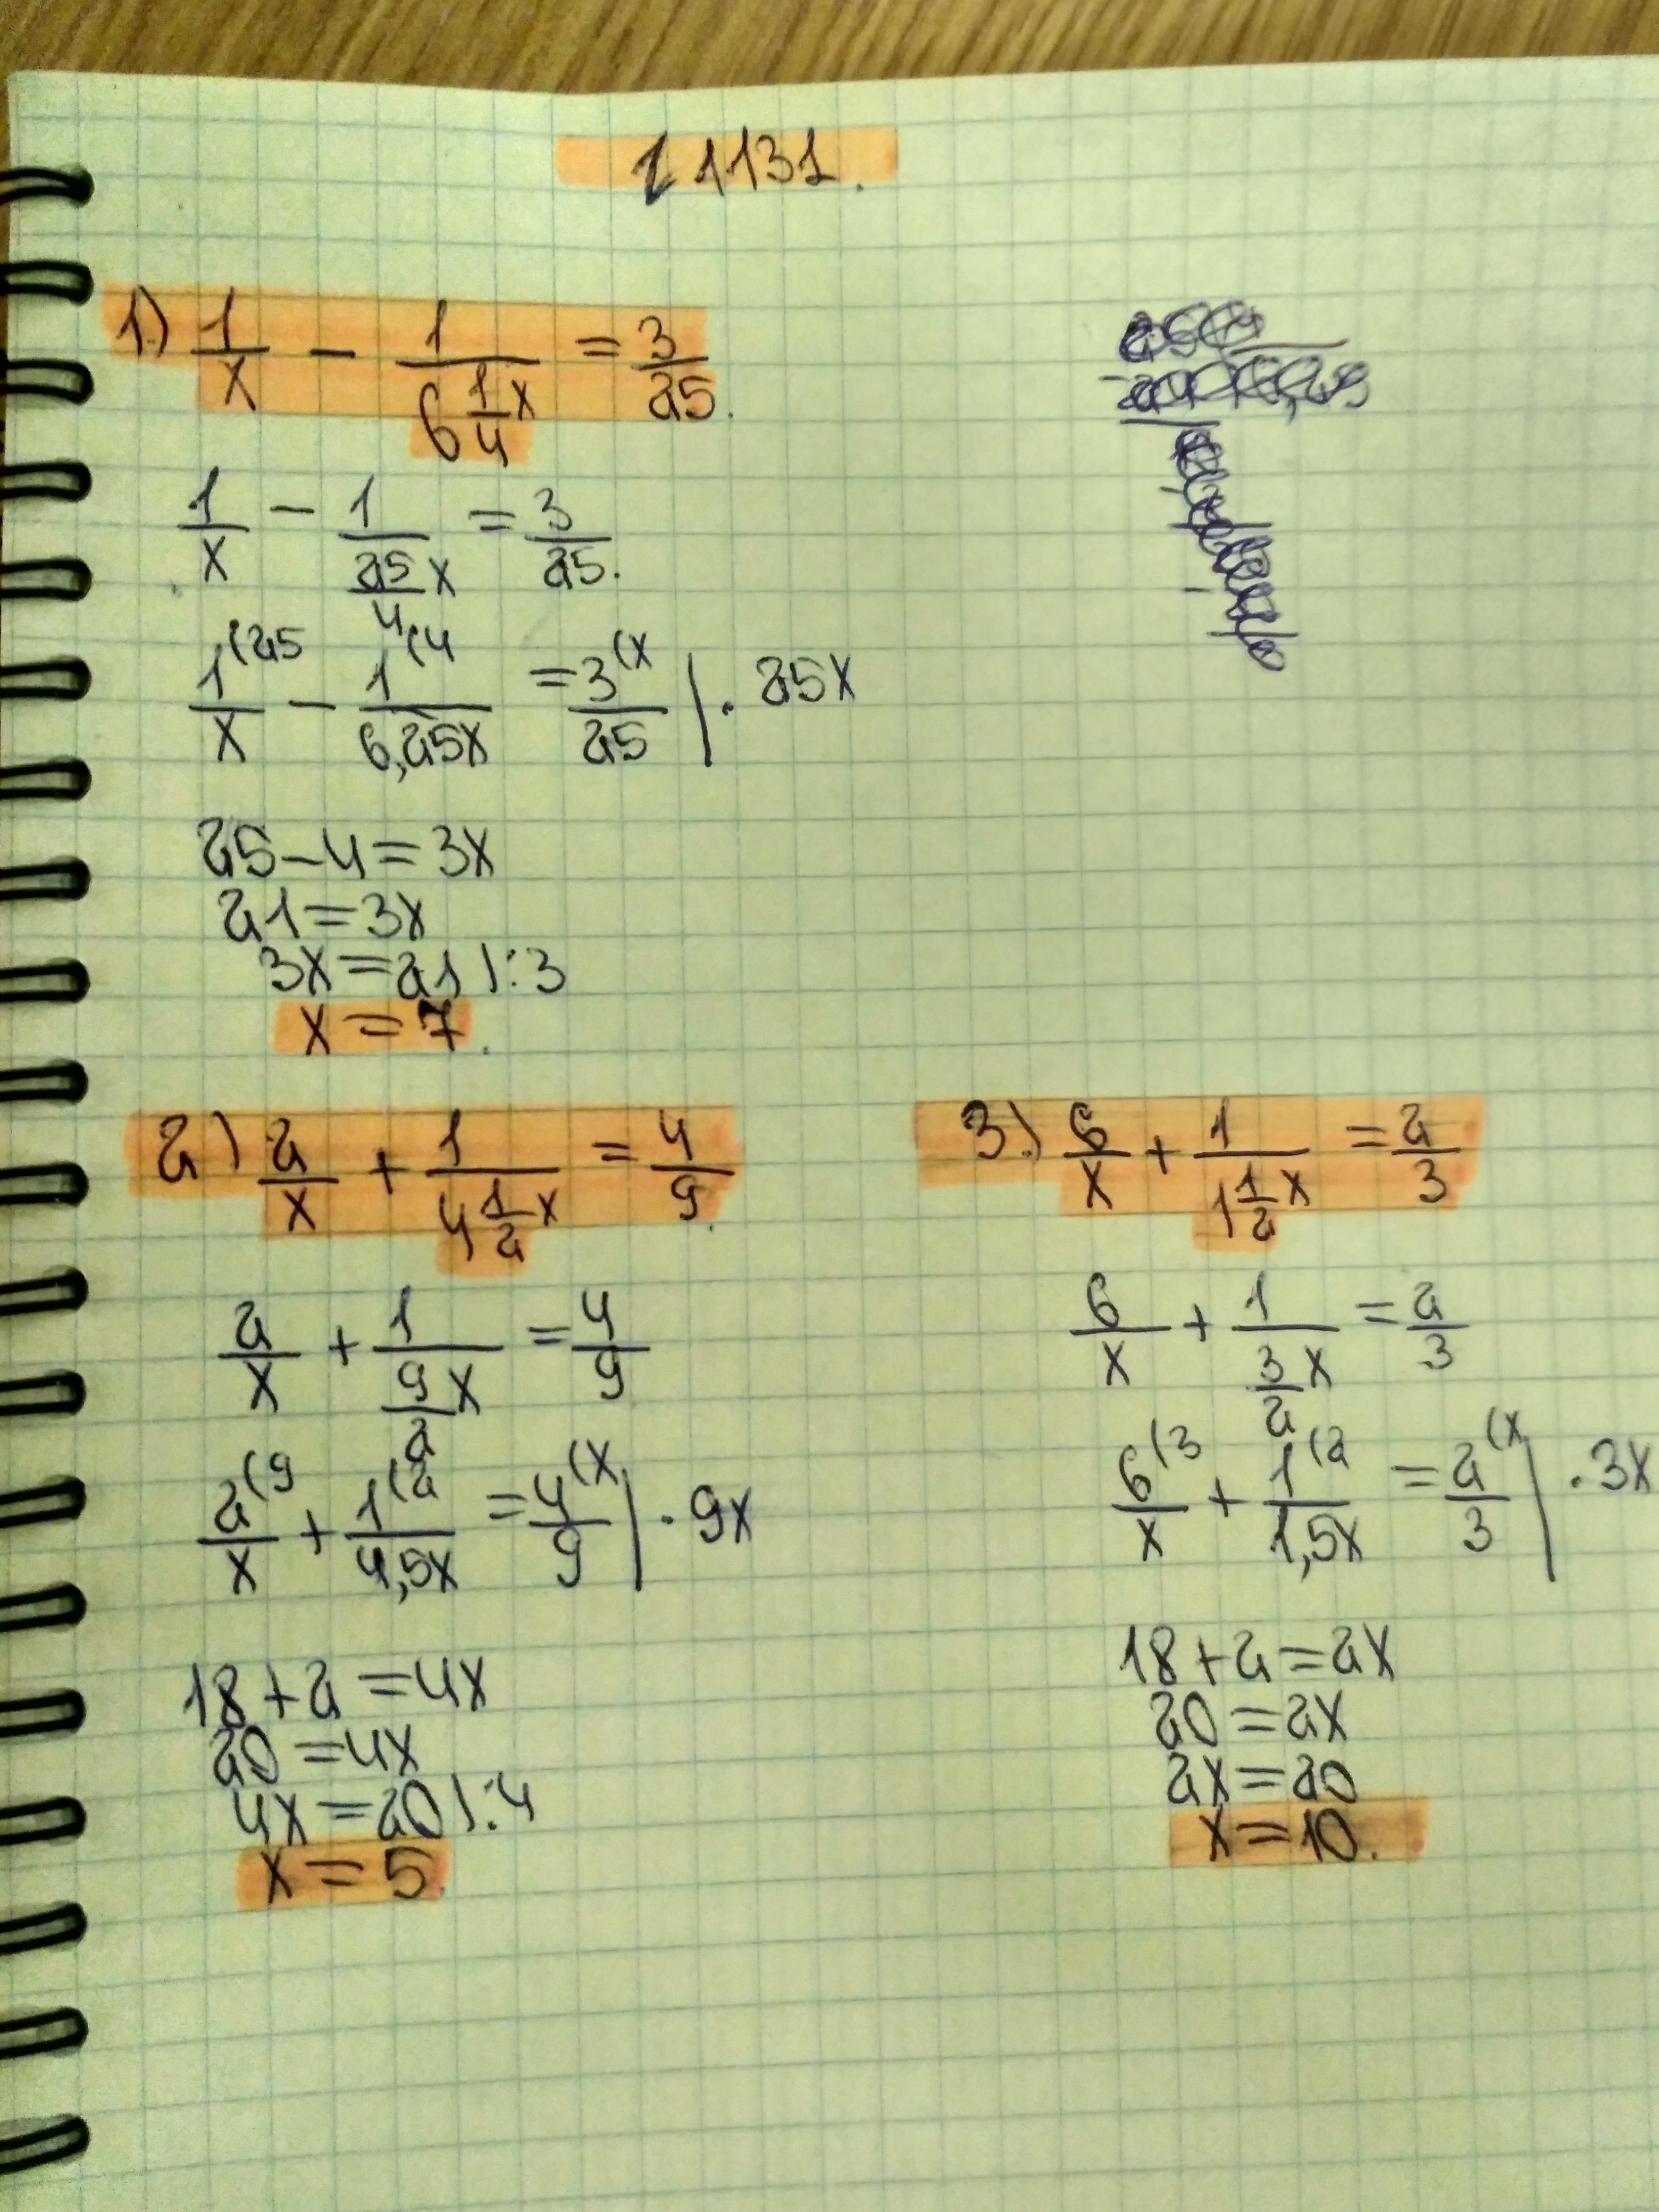 1131.
1.) 1/x - 1/(6 1/4 x) = 3/25.
1/x - 1/(25/4 x) = 3/25.
1(25/x - 1(4/6,25x = 3(x/25 | · 25x
25-4=3x
21=3x
3x=21 |:3
x=7.
2) 2/x + 1/(4 1/2 x) = 4/9.
2/x + 1/(9/2 x) = 4/9
2(9/x + 1(2/4,5x = 4(x/9 | · 9x
18+2=4x
20=4x
4x=20 |:4
x=5.
3.) 6/x + 1/(1 1/2 x) = 2/3
6/x + 1/(3/2 x) = 2/3
6(3/x + 1(2/1,5x = 2(x/3 | · 3x
18+2=2x
20=2x
2x=20
x=10.